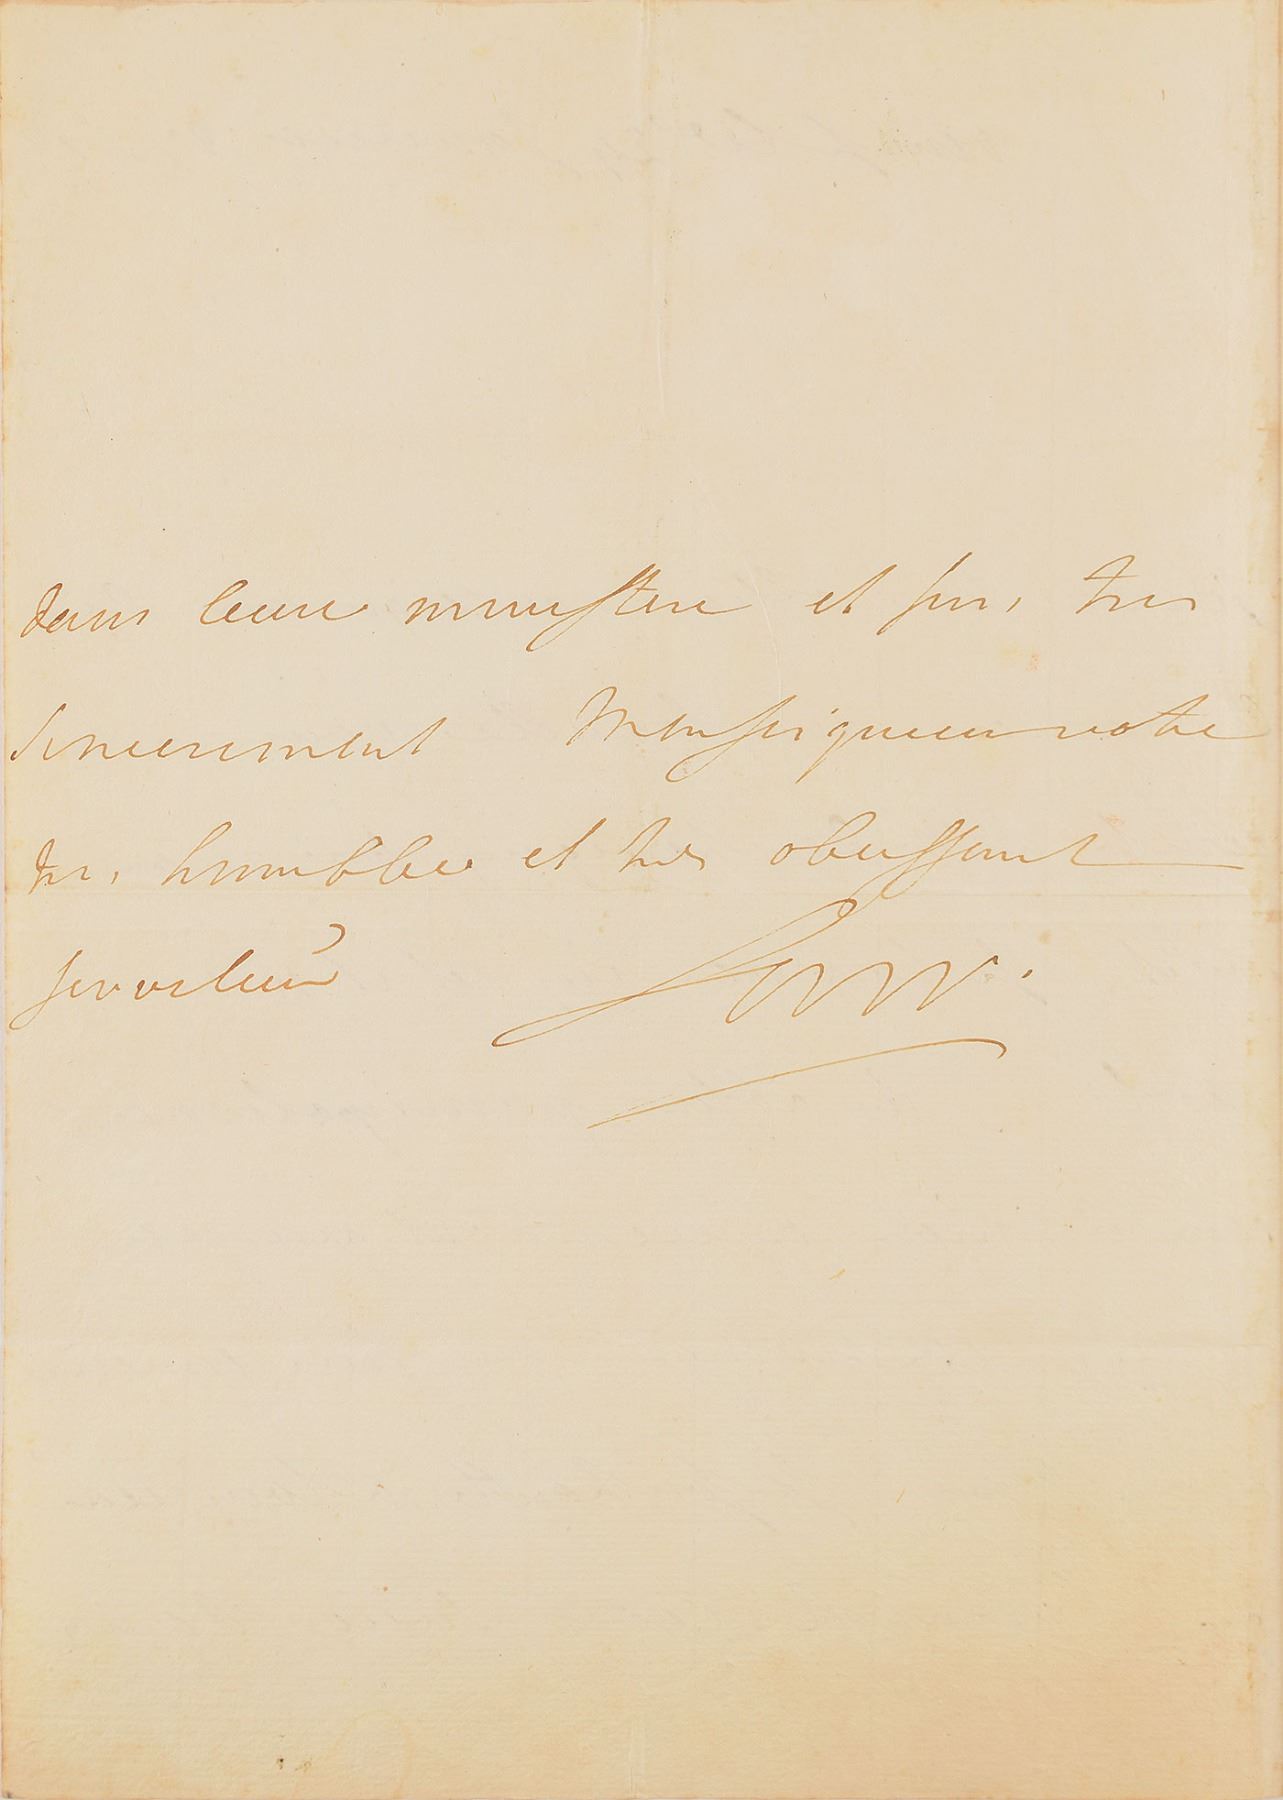 dans leurs ministere et suis tres
sincerement Monseigneur votre
tres humble et tres obeissant
serviteur